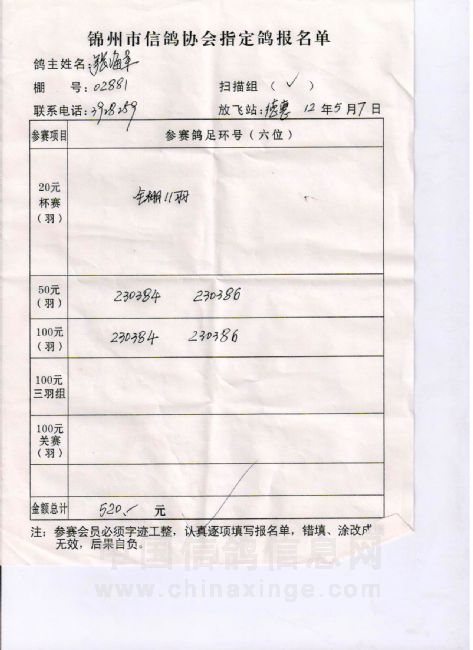 锦州市信鸽协会指定鸽报名单
鸽主姓名:张海军
棚 号:02881 扫描组(✓)
联系电话:3928289 放飞站:德惠 12年5月7日
参赛项目 参赛鸽足环号(六位)
20元
杯赛
(羽)
全棚11羽
50元
(羽)
230384 230386
100元
(羽)
230384 230386
100元
三羽组
100元
关赛
(羽)
金额总计 520.- 元
注:参赛会员必须字迹工整,认真逐项填写报名单,错填、涂改
无效,后果自负。
中国信鸽信息网
www.chinaxinge.com